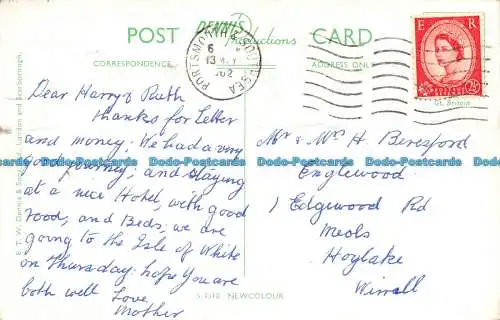 POST DENNIS Productions CARD
CORRESPONDENCE
ADDRESS ONLY
PORTSMOUTH & SOUTHSEA
6
13
1962
E R
2½D
Gt. Britain
Dear Harry & Ruth
thanks for Letter
and money; We had a very
good journey; and staying
at a nice Hotel, with good
food, and Beds; we are
going to the Isle of White
on Thursday. hope You are
both well Love
Mother
Mr & Mrs H Beresford
Englewood
1 Edgewood Rd
Meols
Hoylake
Wirrall
E. T. W. Dennis & Sons Ltd., London and Scarborough.
NEWCOLOUR
www.delcampe-stocks.com